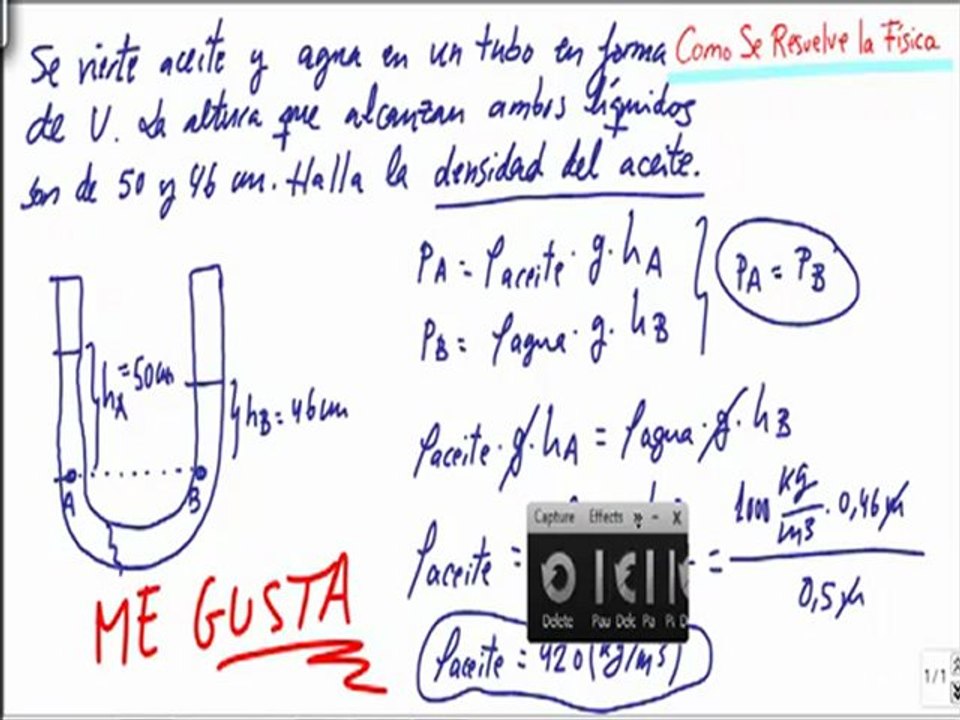 Se vierte aceite y agua en un tubo en forma
Como Se Resuelve la Física
de U. La altura que alcanzan ambos líquidos
son de 50 y 46 cm. Halla la densidad del aceite.
PA = ρaceite · g · hA
PB = ρagua · g · hB
PA = PB
hA = 50 cm
hB = 46 cm
A
B
ρaceite · g · hA = ρagua · g · hB
ρaceite =
= 1000 kg/m3 · 0,46 m
0,5 m
ρaceite = 920 (kg/m3)
ME GUSTA
Capture Effects » – X
Delete Pau Delc Pa
1/1